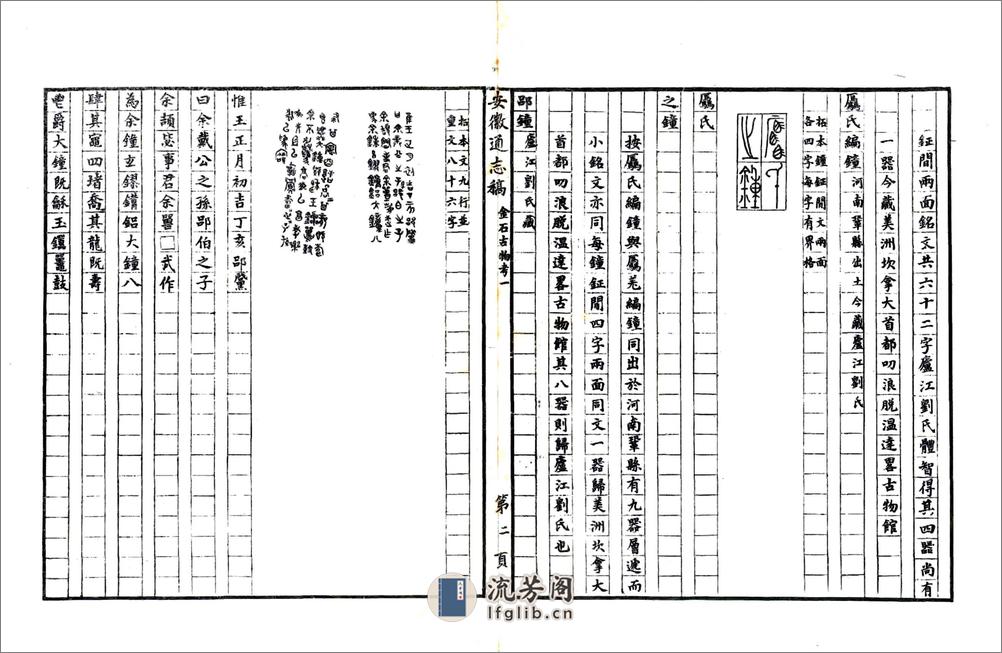 鉦間兩面銘文共六十二字廬江劉氏體智得其四器尚有
一器今藏美洲坎拿大首都叨浪脫温達畧古物館
𠪚氏編鐘河南鞏縣出土今藏廬江劉氏
拓本鐘鉦間文兩面
各四字每字有界格
𠪚氏
之鐘
按𠪚氏編鐘與𠪚羌編鐘同出於河南鞏縣有九器層遞而
小銘文亦同每鐘鉦間四字兩面同文一器歸美洲坎拿大
首都叨浪脫温達畧古物館其八器則歸廬江劉氏也
郘鐘廬江劉氏藏
安徽通志稿 金石古物考一
第二頁
拓本文九行並
重文八十六字
惟王正月初吉丁亥郘黛
曰余戴公之孫郘伯之子
余頡㞷事君余嘼□武作
為余鐘玄鏐鑮鋁大鐘八
肆其竈四堵喬其龍既壽
鬯爵大鐘既龢玉鐉鼉鼓
流芳阁
lfglib.cn